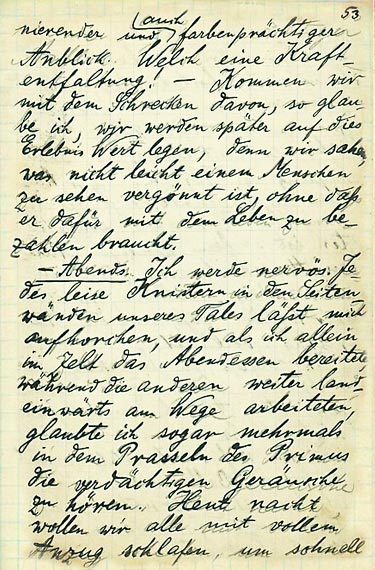 53
nierender und (auch) farbenprächtiger
Anblick. Welch eine Kraft-
entfaltung. — Kommen wir
mit dem Schrecken davon, so glau-
be ich, wir werden später auf dies
Erlebnis Wert legen, denn wir sahen
was nicht leicht einem Menschen
zu sehen vergönnt ist, ohne daß
er dafür mit dem Leben zu be-
zahlen braucht.
— Abends. Ich werde nervös. Je
des leise Knistern in den Seiten
wänden unseres Tales läßt mich
aufhorchen, und als ich allein
im Zelt das Abendessen bereitete
während die anderen weiter land-
einwärts am Wege arbeiteten,
glaubte ich sogar mehrmals
in dem Prasseln des Primus
die verdächtigen Geräusche
zu hören. Heut nacht
wollen wir alle mit vollem
Anzug schlafen, um schnell